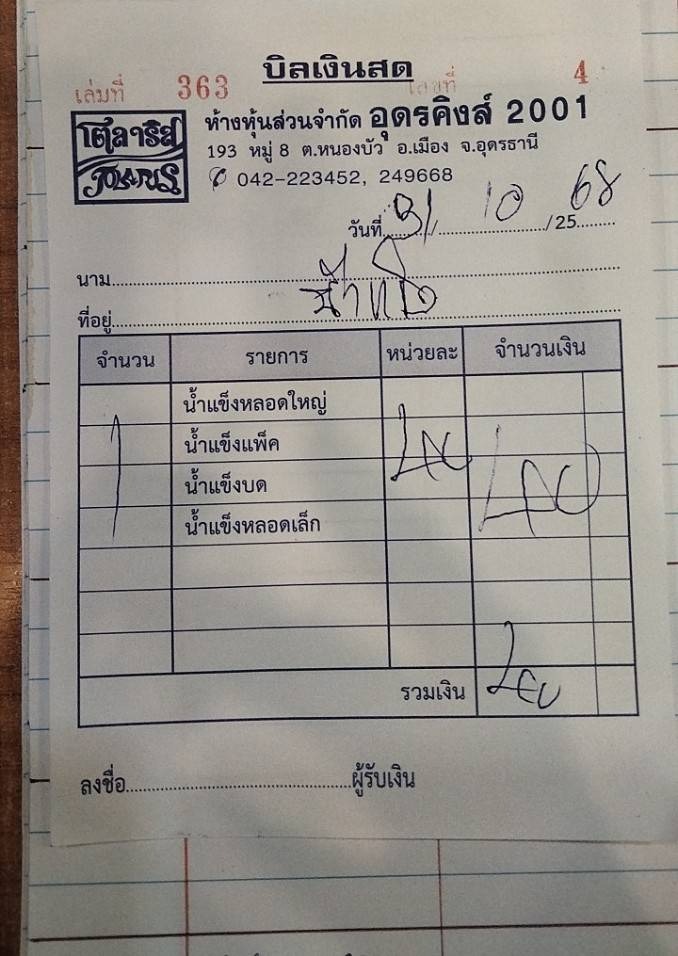 บิลเงินสด
เล่มที่ 363 เลขที่ 4
โตลาริส ห้างหุ้นส่วนจำกัด อุดรคิงส์ 2001
193 หมู่ 8 ต.หนองบัว อ.เมือง จ.อุดรธานี
042-223452, 249668
วันที่ 31 10 /25 68
นาม
ที่อยู่
จำนวน รายการ หน่วยละ จำนวนเงิน
น้ำแข็งหลอดใหญ่
1 น้ำแข็งแพ็ค 40 40
น้ำแข็งบด
น้ำแข็งหลอดเล็ก
รวมเงิน 40
ลงชื่อ ผู้รับเงิน